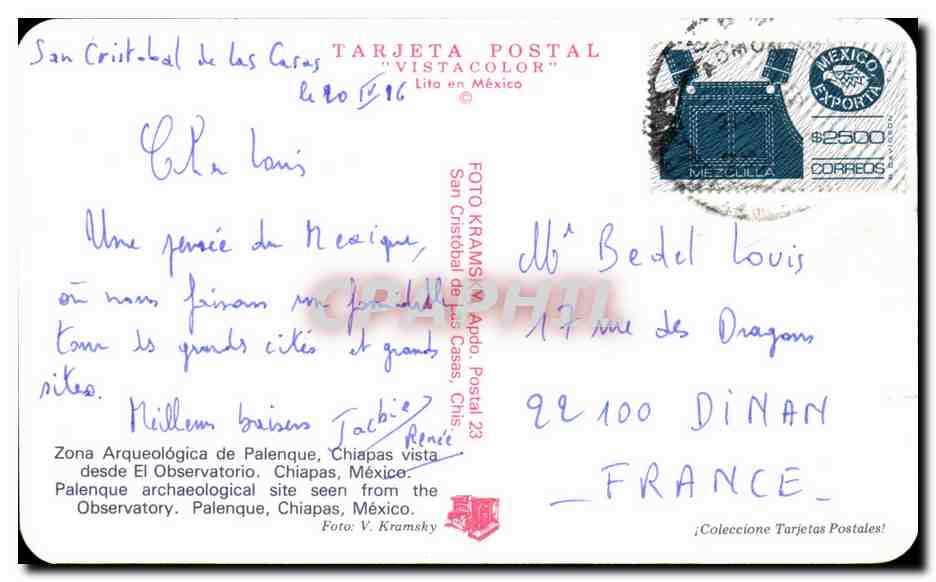 San Cristobal de las Casas
le 20 IV 96
TARJETA POSTAL
"VISTACOLOR"
Lito en México
©
Cher Louis
Une pensée du Mexique,
où nous faisons un formidable
tour des grands cités et grands
sites.
Meilleurs baisers Jackie
Renée
Zona Arqueológica de Palenque, Chiapas vista
desde El Observatorio. Chiapas, México.
Palenque archaeological site seen from the
Observatory. Palenque, Chiapas, México.
Foto: V. Kramsky
FOTO KRAMSKY Apdo. Postal 23
San Cristóbal de Las Casas, Chis.
MEXICO
EXPORTA
$2500
CORREOS
MEZCLILLA
Mr Bedel Louis
17 rue des Dragons
22100 DINAN
FRANCE
¡Coleccione Tarjetas Postales!
CPAPHIL